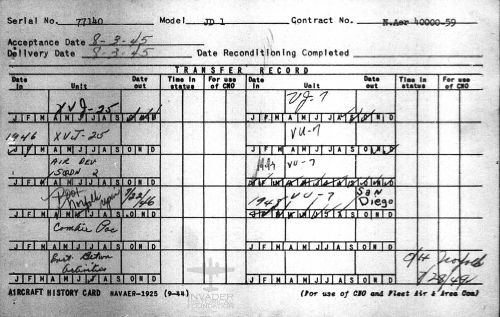 Serial No. 77140 Model JD 1 Contract No. N.Aer 40000-59
Acceptance Date 8-3-45
Delivery Date 8-3-45 Date Reconditioning Completed
TRANSFER RECORD
Date in Unit Date out Time in status For use of CNO Date in Unit Date out Time in status For use of CNO
XVJ-25 VJ-7
J F M A M J J A S O N D J F M A M J J A S O N D
1946 XVJ-25 VU-7
J F M A M J J A S O N D J F M A M J J A S O N D
AIR DEV
SQDN 2 VU-7
J F M A M J J A S O N D J F M A M J J A S O N D
Norfolk 9/22/46 1948 VU-7 San Diego
J F M A M J J A S O N D J F M A M J J A S O N D
Pac
J F M A M J J A S O N D J F M A M J J A S O N D
Activities O/H Norfolk
J F M A M J J A S O N D J F M A M J J A S O N D
AIRCRAFT HISTORY CARD NAVAER-1925 (9-44) (For use of CNO and Fleet Air & Area Com)
INVADER
FOUNDATION